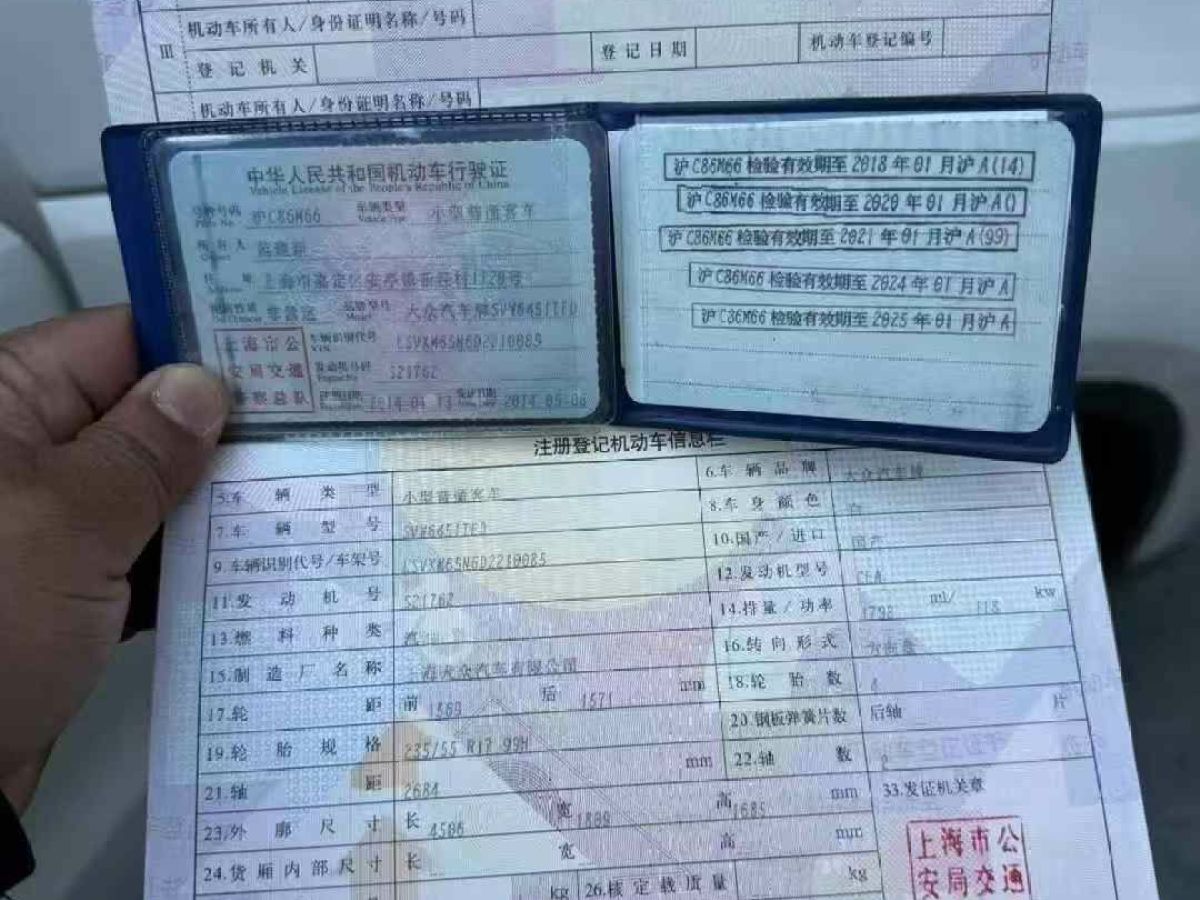 III 机动车所有人/身份证明名称/号码
登记机关 登记日期 机动车登记编号
机动车所有人/身份证明名称/号码
中华人民共和国机动车行驶证
Vehicle License of the People's Republic of China
号牌号码 沪C86M66 车辆类型 小型普通客车
所有人
住址
使用性质 非营运 品牌型号 大众汽车牌SVW6451TED
上海市公 车辆识别代号
安局交通 发动机号码 S21762
警察总队 注册日期 发证日期
沪C86M66 检验有效期至2018年01月沪A(14)
沪C86M66 检验有效期至2020年01月沪A()
沪C86M66 检验有效期至2021年01月沪A(99)
沪C86M66 检验有效期至2024年01月沪A
沪C86M66 检验有效期至2025年01月沪A
注册登记机动车信息栏
5.车辆类型 小型普通客车 6.车辆品牌 大众汽车牌
7.车辆型号 SVW6451TED 8.车身颜色 白
9.车辆识别代号/车架号 10.国产/进口 国产
11.发动机号 S21762 12.发动机型号
13.燃料种类 汽油 14.排量/功率 ml/ 118 kw
15.制造厂名称 上海大众汽车有限公司 16.转向形式 方向盘
17.轮距 前 1569 后 1571 mm 18.轮胎数 4
19.轮胎规格 235/55 R17 99H 20.钢板弹簧片数 后轴 片
21.轴距 2684 mm 22.轴数 2
23.外廓尺寸 长 4506 宽 1809 高 1685 mm 33.发证机关章
24.货厢内部尺寸 长 宽 高 mm 上海市公
kg 26.核定载质量 kg 安局交通